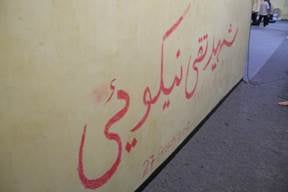 شهید تقی نیکوئی